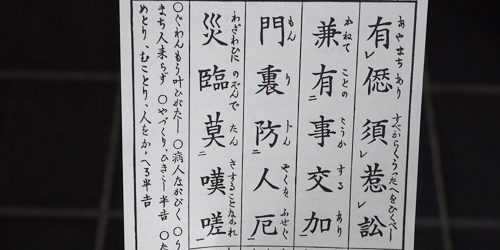 あやまち あり すべからくうつたへをひくべし
有レ愆須レ惹レ訟
かねて ことの こうか する あり
兼有二事交加一
もん り ドン やくを ふせぐ
門裏防二人厄一
わざわひに のぞんで たん さすることなかれ
災臨莫二嘆嗟一
○ぐわんもう叶ひがたし ○病人ながびく ○う
まち人来らず ○やづくり、ひきこし半吉 ○た
めとり、むことり、人をかゝへる半吉